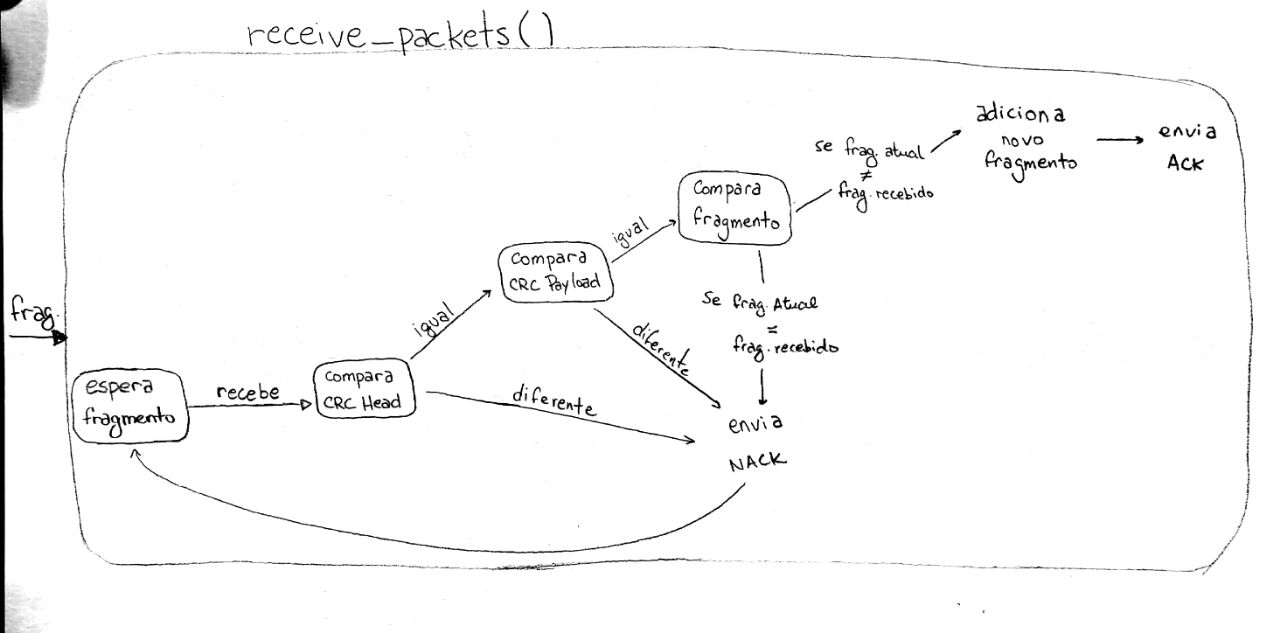 receive_packets()
frag.
espera
fragmento
recebe
Compara
CRC Head
igual
diferente
Compara
CRC Payload
igual
diferente
Compara
fragmento
se frag. atual
≠
frag. recebido
adiciona
novo
fragmento
envia
ACK
Se frag. Atual
=
frag. recebido
envia
NACK